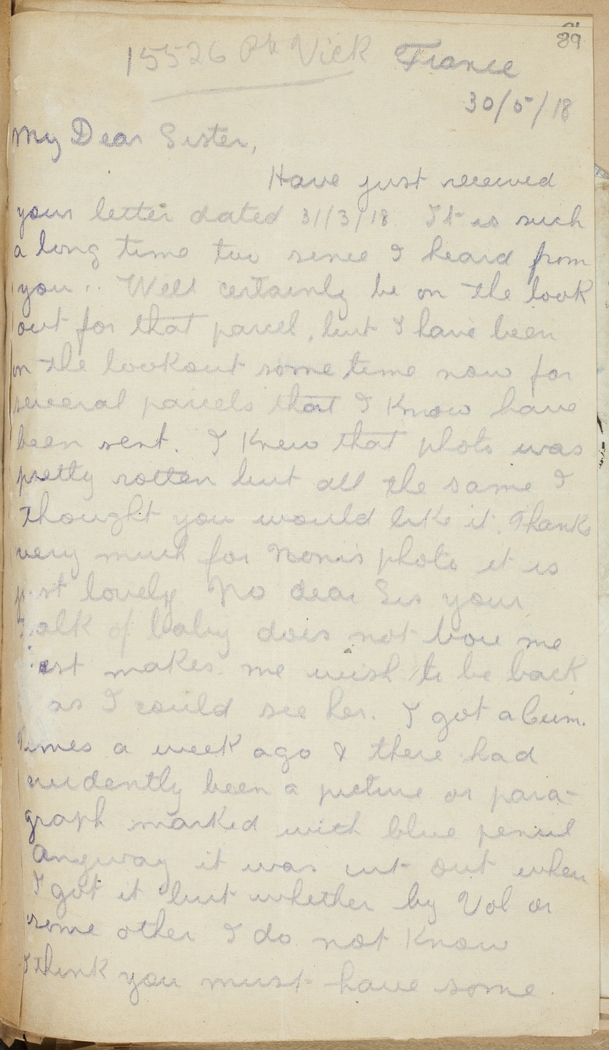 89
15526 Pte Vick France
30/5/18
My Dear Sister,
Have just received
your letter dated 31/3/18. It is such
a long time too since I heard from
you.. Will certainly be on the look
out for that parcel, but I have been
on the lookout some time now for
several parcels that I know have
been sent. I knew that photo was
pretty rotten but all the same I
thought you would like it. Thanks
very much for Nonis photo it is
just lovely No dear Sis your
talk of baby does not bore me
just makes me wish to be back
so as I could see her. I got a Cum.
Times a week ago & there had
evidently been a picture or para-
graph marked with blue pencil
anyway it was cut out when
I got it but whether by Vol or
some other I do not know
I think you must have some